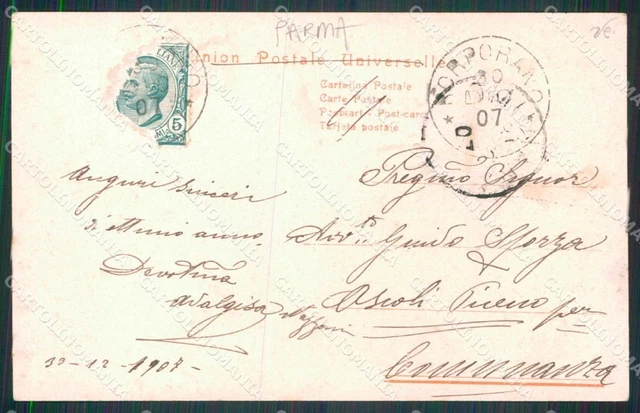 PARMA
Union Postale Universelle
Cartolina Postale
Carte Postale
Postkarte - Post-card
Tarjeta postale
5
CORPORANO
30
07
Auguri sinceri
d'ottimo anno.
Devotma
Adalgisa
30-12-1907-
Pregmo Signor
Avvto Guido Sforza
Ascoli Piceno per
Comunanza
CARTOLINOMANIA